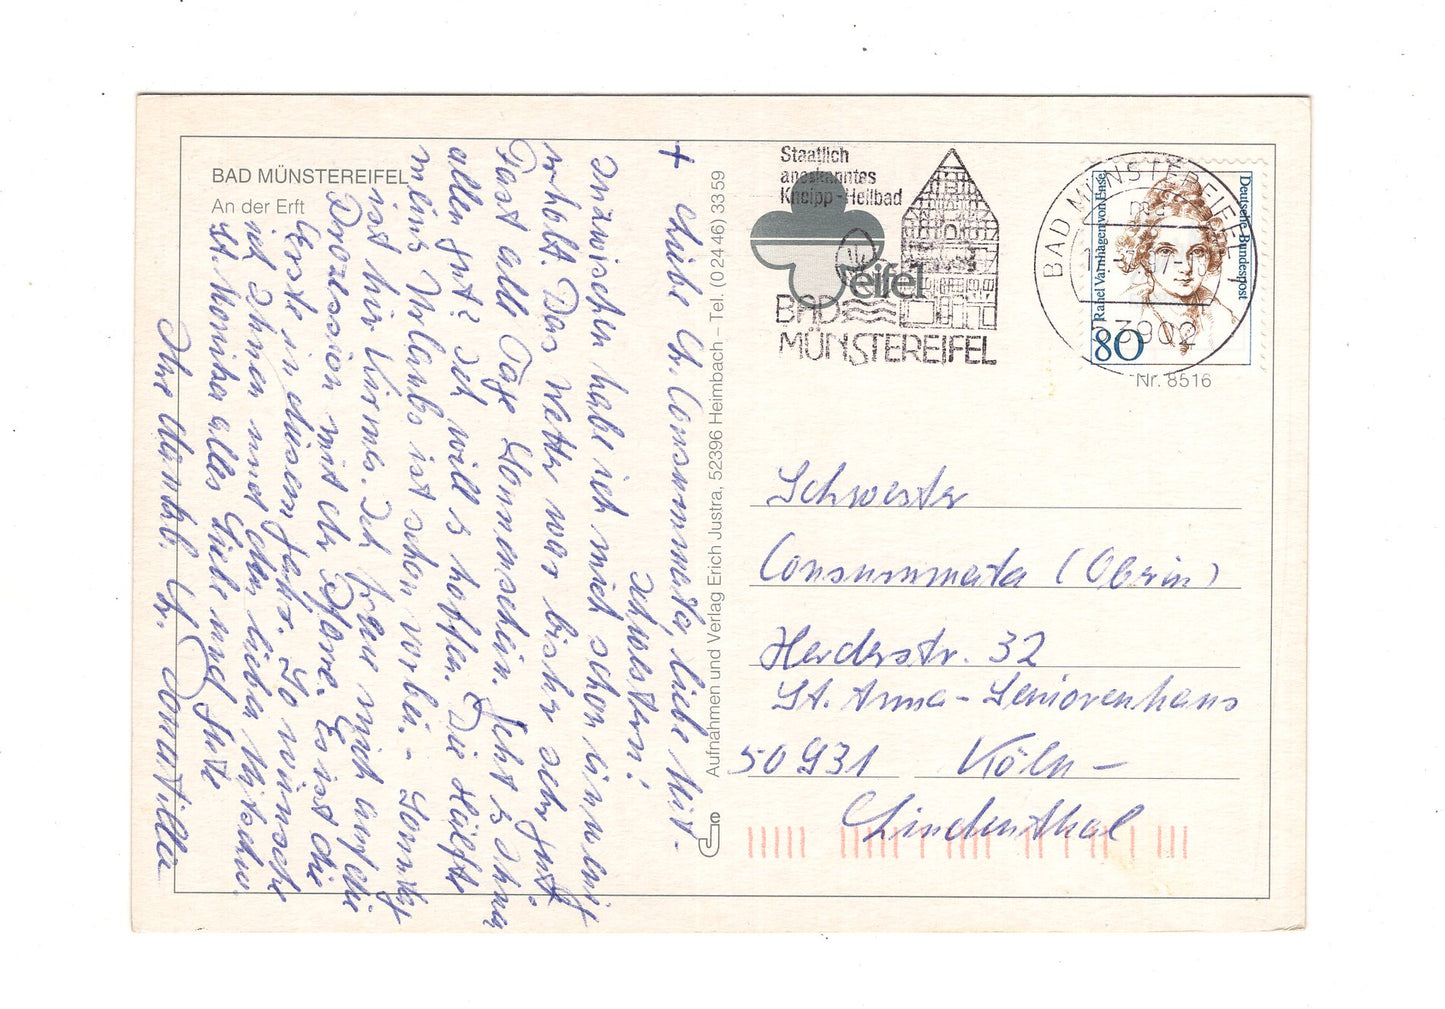 BAD MÜNSTEREIFEL
An der Erft
+ Liebe Sr. Consummata, liebe Mit-
schwestern!
Inzwischen habe ich mich schon einmalig
erholt. Das Wetter war bisher sehr gut.
Fast alle Tage Sonnenschein. Geht's Ihnen
allen gut? Ich will's hoffen. Die Hälfte
meines Urlaubs ist schon vorbei. - Sonntag
ist hier Kirmes. Ich freue mich auf die
Prozession mit der Pfarre. Es ist die
Erste in diesem Jahr. So wünsche
ich Ihnen und den lieben Mitschw.
St. Monika alles Liebe und Gute
Ihre dankb. Sr. Donatilla
Aufnahmen und Verlag Erich Justra, 52396 Heimbach – Tel. (0 24 46) 33 59
Staatlich
anerkanntes
Kneipp-Heilbad
eifel
BAD
MÜNSTEREIFEL
BAD MÜNSTEREIFEL
53902
Rahel Varnhagen von Ense
Deutsche Bundespost
80
Nr. 8516
Schwester
Consummata (Oberin)
Herderstr. 32
St. Anna-Seniorenhaus
50931 Köln-
Lindenthal